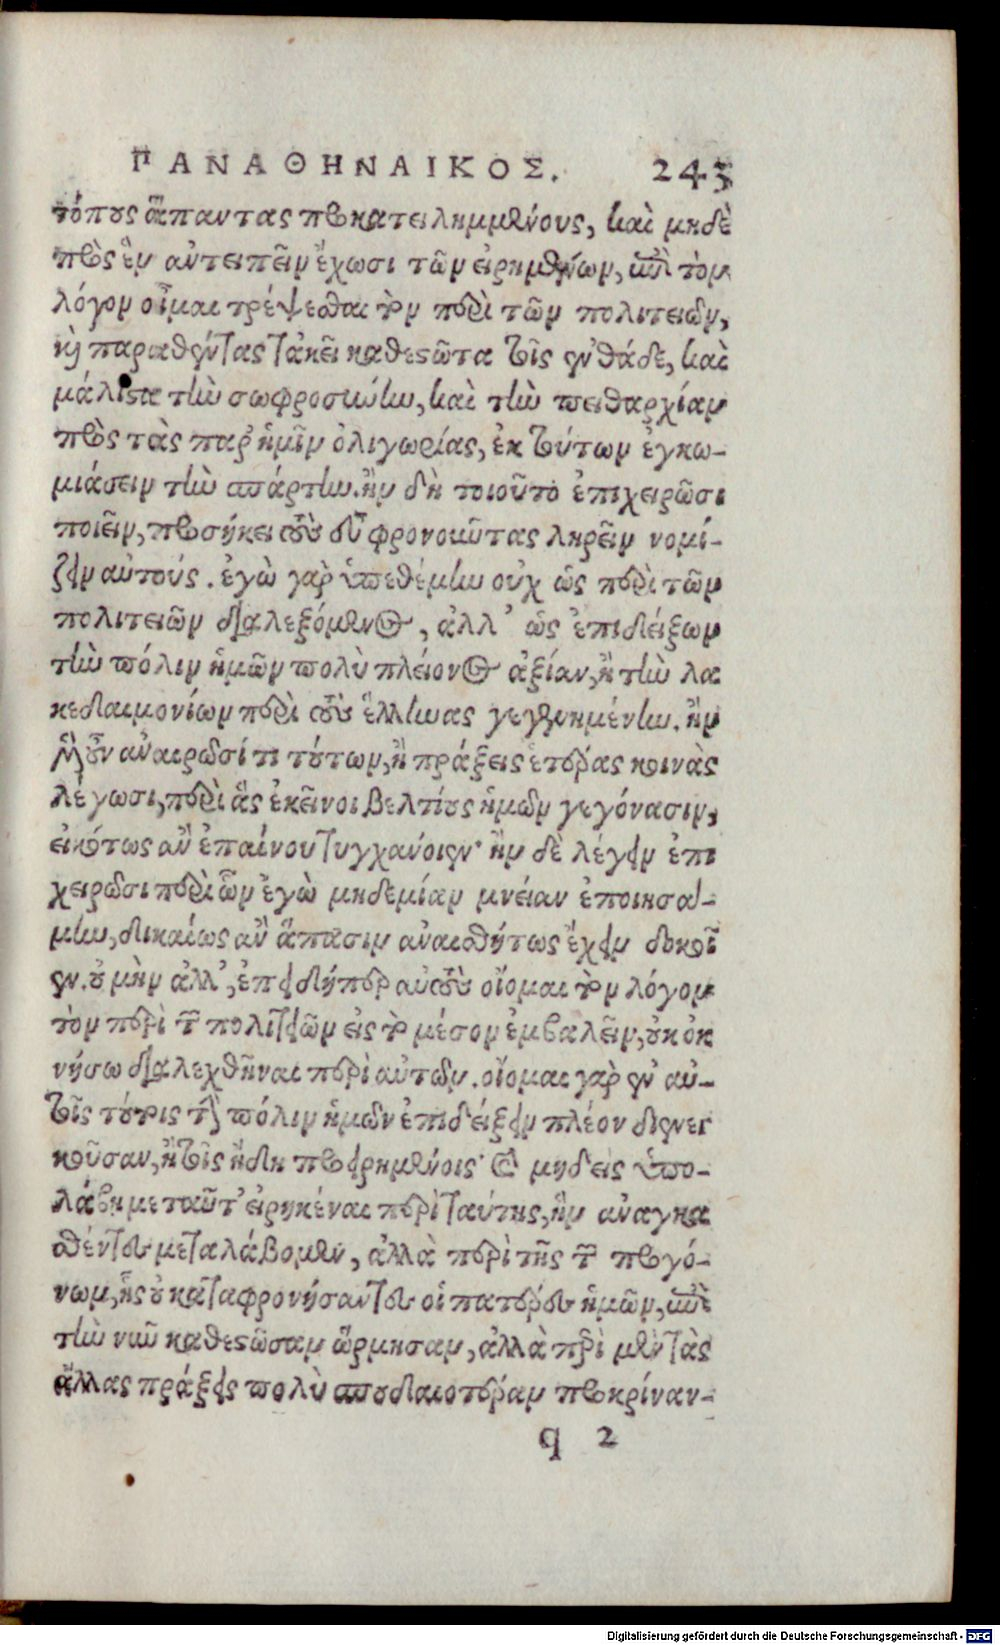 ΠΑΝΑΘΗΝΑΙΚΟΣ. 243
τόπους ἅπαντας προκατειλημμένους, καὶ μηδὲ
πρὸς ἓν ἀντειπεῖν ἔχωσι τῶν εἰρημένων, ἐπὶ τὸν
λόγον οἶμαι τρέψεσθαι τὸν περὶ τῶν πολιτειῶν,
καὶ παραθέντας τἀκεῖ καθεστῶτα τοῖς ἐνθάδε, καὶ
μάλιστα τὴν σωφροσύνην, καὶ τὴν πειθαρχίαν
πρὸς τὰς παρ' ἡμῖν ὀλιγωρίας, ἐκ τούτων ἐγκω-
μιάσειν τὴν σπάρτην. ἢν δὴ τοιοῦτο ἐπιχειρῶσι
ποιεῖν, προσήκει τοὺς εὖ φρονοῦντας ληρεῖν νομί-
ζειν αὐτούς. ἐγὼ γὰρ ὑπεθέμην οὐχ ὡς περὶ τῶν
πολιτειῶν διαλεξόμενος, ἀλλ' ὡς ἐπιδείξων
τὴν πόλιν ἡμῶν πολὺ πλείονος ἀξίαν, ἢ τὴν λα
κεδαιμονίων περὶ τοὺς ἕλληνας γεγενημένην. ἢν
μὲν οὖν ἀναιρῶσί τι τούτων, ἢ πράξεις ἑτέρας κοινὰς
λέγωσι, περὶ ἃς ἐκεῖνοι βελτίους ἡμῶν γεγόνασιν,
εἰκότως ἂν ἐπαίνου τυγχάνοιεν· ἢν δὲ λέγειν ἐπι
χειρῶσι περὶ ὧν ἐγὼ μηδεμίαν μνείαν ἐποιησά-
μην, δικαίως ἂν ἅπασιν ἀναισθήτως ἔχειν δοκοῖ
εν. οὐ μὴν ἀλλ', ἐπειδήπερ αὐτοὺς οἴομαι τὸν λόγον
τὸν περὶ τῶν πολιτειῶν εἰς τὸ μέσον ἐμβαλεῖν, οὐκ ὀκ
νήσω διαλεχθῆναι περὶ αὐτῶν. οἴομαι γὰρ ἐν αὐ-
τοῖς τούτοις τὴν πόλιν ἡμῶν ἐπιδείξειν πλέον διενεγ
κοῦσαν, ἢ τοῖς ἤδη προειρημένοις· καὶ μηδεὶς ὑπο-
λάβῃ με ταῦτ' εἰρηκέναι περὶ ταύτης, ἣν ἀναγκα
σθέντες μεταλάβομεν, ἀλλὰ περὶ τῆς τῶν προγό-
νων, ἧς οὐ καταφρονήσαντες οἱ πατέρες ἡμῶν, ἐπὶ
τὴν νῦν καθεστῶσαν ὥρμησαν, ἀλλὰ περὶ μὲν τὰς
ἄλλας πράξεις πολὺ σπουδαιοτέραν προκρίναν-
q 2
Digitalisierung gefördert durch die Deutsche Forschungsgemeinschaft - DFG